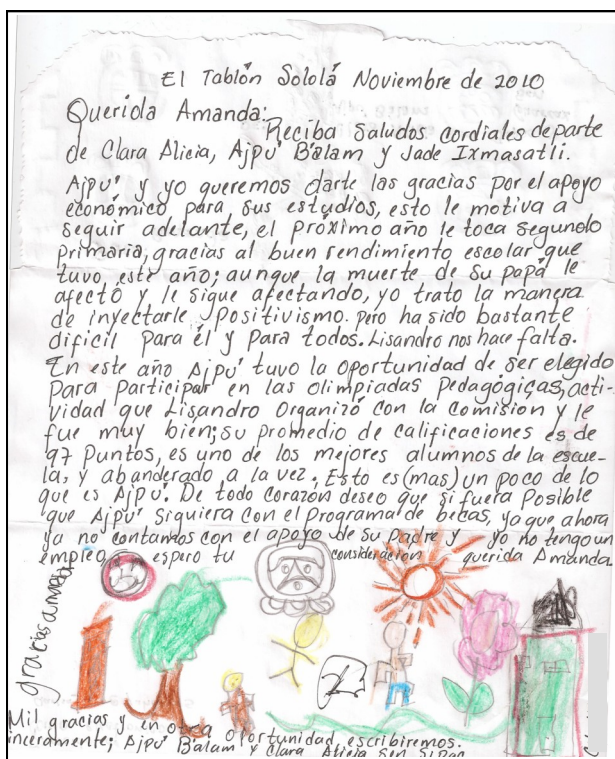 El Tablón Sololá Noviembre de 2010
Querida Amanda:
Reciba Saludos cordiales de parte
de Clara Alicia, Ajpu' Balam y Jade Ixmasatli.
Ajpu' y yo queremos darte las gracias por el apoyo
económico para sus estudios, esto le motiva a
seguir adelante, el próximo año le toca segundo
primaria, gracias al buen rendimiento escolar que
tuvo este año; aunque la muerte de su papá le
afectó y le sigue afectando, yo trato la manera
de inyectarle positivismo. pero ha sido bastante
dificil para él y para todos. Lisandro nos hace falta.
En este año Ajpu' tuvo la oportunidad de ser elegido
para participar en las olimpiadas pedagógicas, acti-
vidad que Lisandro Organizó con la Comision y le
fue muy bien; su promedio de calificaciones es de
97 puntos, es uno de los mejores alumnos de la escue-
la, y abanderado a la vez. Esto es (mas) un poco de lo
que es Ajpu'. De todo corazón deseo que si fuera posible
que Ajpu' siguiera con el programa de becas, ya que ahora
ya no contamos con el apoyo de su padre y yo no tengo un
empleo espero tu consideración querida Amanda.
gracias amanda
Mil gracias y en otra oportunidad escribiremos.
inceramente; Ajpu' Balam y Clara Alicia Sen Sipac